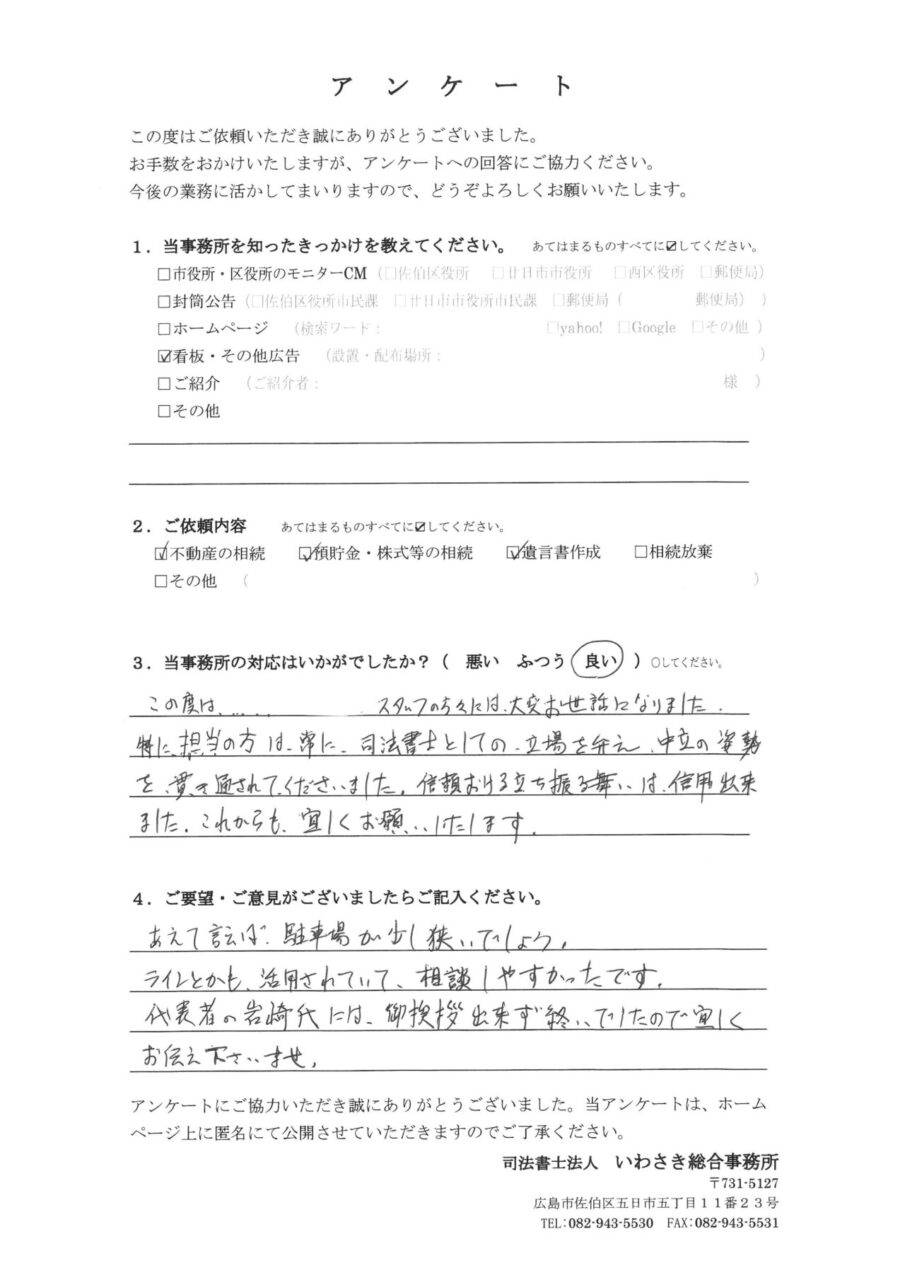 アンケート
この度はご依頼いただき誠にありがとうございました。
お手数をおかけいたしますが、アンケートへの回答にご協力ください。
今後の業務に活かしてまいりますので、どうぞよろしくお願いいたします。
1．当事務所を知ったきっかけを教えてください。 あてはまるものすべてに☑してください。
□市役所・区役所のモニターCM（□佐伯区役所 □廿日市市役所 □西区役所 □郵便局）
□封筒公告（□佐伯区役所市民課 □廿日市市役所市民課 □郵便局（ 郵便局））
□ホームページ （検索ワード： □yahoo! □Google □その他）
☑看板・その他広告 （設置・配布場所： ）
□ご紹介 （ご紹介者： 様 ）
□その他
2．ご依頼内容 あてはまるものすべてに☑してください。
☑不動産の相続 ☑預貯金・株式等の相続 ☑遺言書作成 □相続放棄
□その他 （ ）
3．当事務所の対応はいかがでしたか？（ 悪い ふつう 良い ）○してください。
この度は、.... スタッフの方々には、大変お世話になりました.
特に、担当の方は、常に、司法書士としての、立場を弁え、中立の姿勢
を、貫き通されてくださいました。信頼おける立ち振る舞いは、信用出来
ました。これからも、宜しくお願いいたします.
4．ご要望・ご意見がございましたらご記入ください。
あえて言えば、駐車場が少し狭いでしょう。
ラインとかも、活用されていて、相談しやすかったです。
代表者の岩崎氏には、御挨拶出来ず終いでしたので宜しく
お伝え下さいませ。
アンケートにご協力いただき誠にありがとうございました。当アンケートは、ホーム
ページ上に匿名にて公開させていただきますのでご了承ください。
司法書士法人 いわさき総合事務所
〒731-5127
広島市佐伯区五日市五丁目１１番２３号
TEL:082-943-5530 FAX:082-943-5531